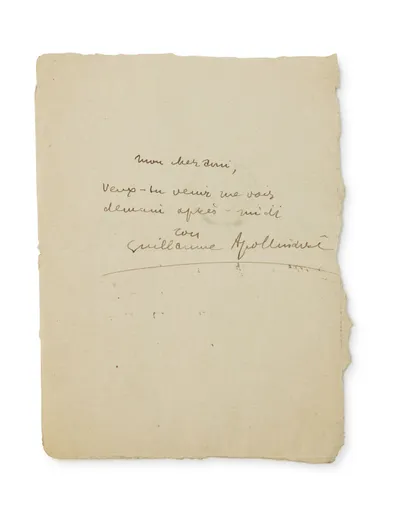 mon cher ami,
Veux-tu venir me voir
demain après-midi
ton
Guillaume Apollinaire